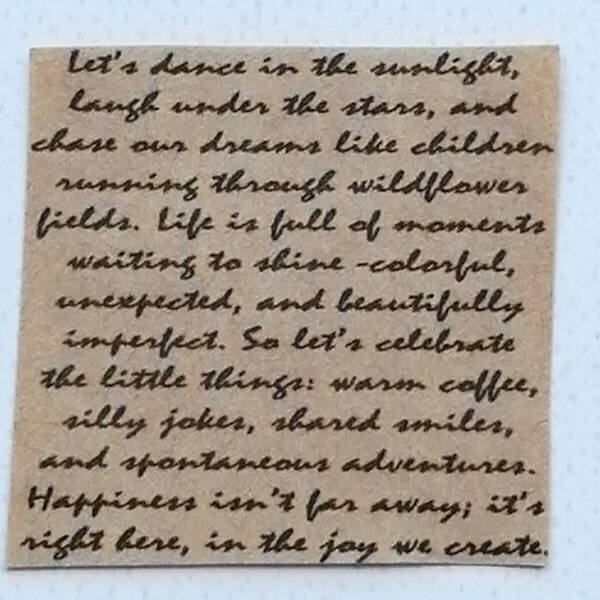 Let's dance in the sunlight,
laugh under the stars, and
chase our dreams like children
running through wildflower
fields. Life is full of moments
waiting to shine -colorful,
unexpected, and beautifully
imperfect. So let's celebrate
the little things: warm coffee,
silly jokes, shared smiles,
and spontaneous adventures.
Happiness isn't far away; it's
right here, in the joy we create.